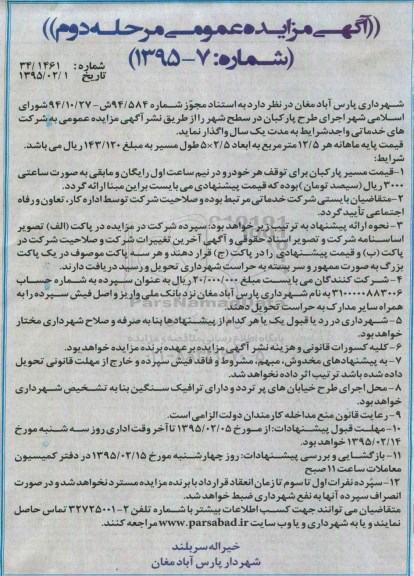 ((آگهی مزایده عمومی مرحله دوم))
(شماره: ۷-۱۳۹۵)
شماره: ۳۴/۱۴۶۱
تاریخ ۱۳۹۵/۰۲/۱
شهرداری پارس آبادمغان در نظر دارد به استناد مجوز شماره ۹۴/۵۸۴ش-۹۴/۱۰/۲۷ شورای
اسلامی شهر اجرای طرح پارکبان در سطح شهر را از طریق نشر آگهی مزایده عمومی به شرکت
های خدماتی واجدشرایط به مدت یک سال واگذار نماید.
قیمت پایه ماهانه هر ۱۲/۵ متر مربع به ابعاد ۲/۵×۵ طول مسیر به مبلغ ۱۴۳/۱۲۰ ریال می باشد.
شرایط:
۱-قیمت مسیر پارکبان برای توقف هر خودرو در نیم ساعت اول رایگان و مابقی به صورت ساعتی
۳۰۰۰ ریال (سیصد تومان) بوده که قیمت پیشنهادی می بایست بر این مبنا ارائه گردد.
۲-متقاضیان بایستی شرکت خدماتی مرتبط بوده و صلاحیت شرکت توسط اداره کار، تعاون و رفاه
اجتماعی تأیید گردد.
۳- نحوه ارائه پیشنهاد به ترتیب زیر خواهد بود: سپرده شرکت در مزایده در پاکت (الف) تصویر
اساسنامه شرکت و تصویر اسناد حقوقی و آگهی آخرین تغییرات شرکت و صلاحیت شرکت در
پاکت (ب) و قیمت پیشنهادی را در پاکت (ج) قرار دهند و هر سه پاکت موصوف در یک پاکت
بزرگ به صورت ممهور و سر بسته به حراست شهرداری تحویل و رسید دریافت دارند.
۴- شرکت کنندگان می بایست مبلغ ۲۰/۰۰۰/۰۰۰ ریال به عنوان سپرده به شماره حساب
۳۱۰۰۰۰۰۸۸۳۰۰۶ به نام شهرداری پارس آبادمغان نزد بانک ملی واریز و اصل فیش سپرده را به
همراه سایر مدارک به حراست تحویل دهند.
۵- شهرداری در رد یا قبول یک یا هر کدام از پیشنهادها بنا به صرفه و صلاح شهرداری مختار
خواهدبود.
۶- کلیه کسورات قانونی و هزینه نشر آگهی مزایده بر عهده برنده مزایده خواهدبود.
۷- به پیشنهادهای مخدوش، مبهم، مشروط و فاقد فیش سپرده و خارج از مهلت قانونی تحویل
داده شده باشد ترتیب اثر داده نخواهدشد.
۸- محل اجرای طرح خیابان های پر تردد و دارای ترافیک سنگین بنا به تشخیص شهرداری
خواهدبود.
۹- رعایت قانون منع مداخله کارمندان دولت الزامی است.
۱۰- مهلت قبول پیشنهادات: از مورخ ۱۳۹۵/۰۲/۰۵ تا آخر وقت اداری روز سه شنبه مورخ
۱۳۹۵/۰۲/۱۴ خواهدبود.
۱۱- بازگشایی و بررسی پیشنهادات: روز چهارشنبه مورخ ۱۳۹۵/۰۲/۱۵ در دفتر کمیسیون
معاملات ساعت ۱۱ صبح
۱۲- سپرده نفرات اول تا سوم تا زمان انعقاد قرارداد با برنده مزایده مسترد نخواهد شد و در صورت
انصراف سپرده آنها به نفع شهرداری ضبط خواهدشد.
متقاضیان می توانند جهت کسب اطلاعات بیشتر با شماره تلفن ۲-۳۲۷۲۵۰۰۱ تماس حاصل
نمایند و یا به شهرداری و یا وب سایت www.parsabad.ir مراجعه کنند.
خیراله سربلند
شهردار پارس آبادمغان